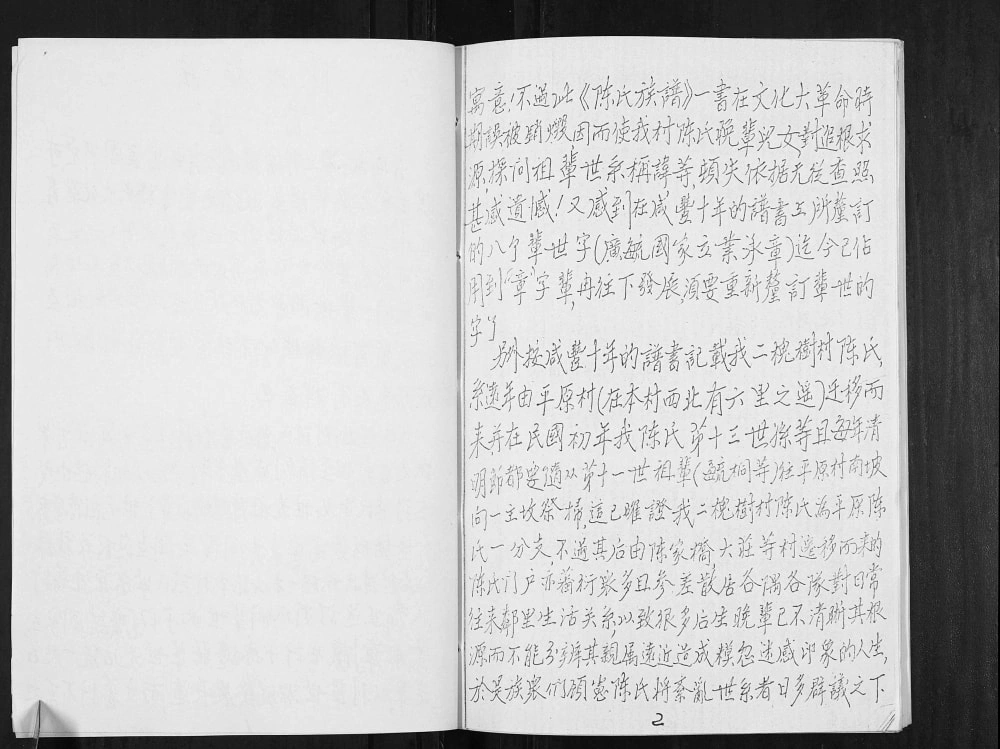 寓意！不過此《陈氏族譜》一書在文化大革命時
期误被銷燬因而使我村陈氏晚輩兒女對追根求
源探问祖輩世系稱諱等，頓失依据无從查照
甚感遺憾！又感到在咸豐十年的譜書上所釐訂
的八个輩世字(廣毓國家立業泳章)迄今已佔
用到“章”字輩，再往下發展，須要重新釐訂輩世的
字了
另外按咸豐十年的譜書記載我二槐樹村陈氏，
系遠年由平原村(在本村西北有六里之遥)迁移而
来并在民國初年我陈氏第十三世孫等且每年清
明節都要随从第十一世祖輩(毓桐等)往平原村南坡
向一主坟祭掃，這已確證我二槐樹村陈氏為平原陈
氏一分支，不過其后由陈家橋大莊等村遷移而来的
陈氏门户亦蕃衍衆多且参差散居各隅各隊對日常
往来鄰里生活关系，以致很多后生晚輩已不清晰其根
源而不能分辨其親属遠近造成模忽迷惑印象的人生，
於是族衆们顾慮陈氏將紊亂世系者日多群議之下
2